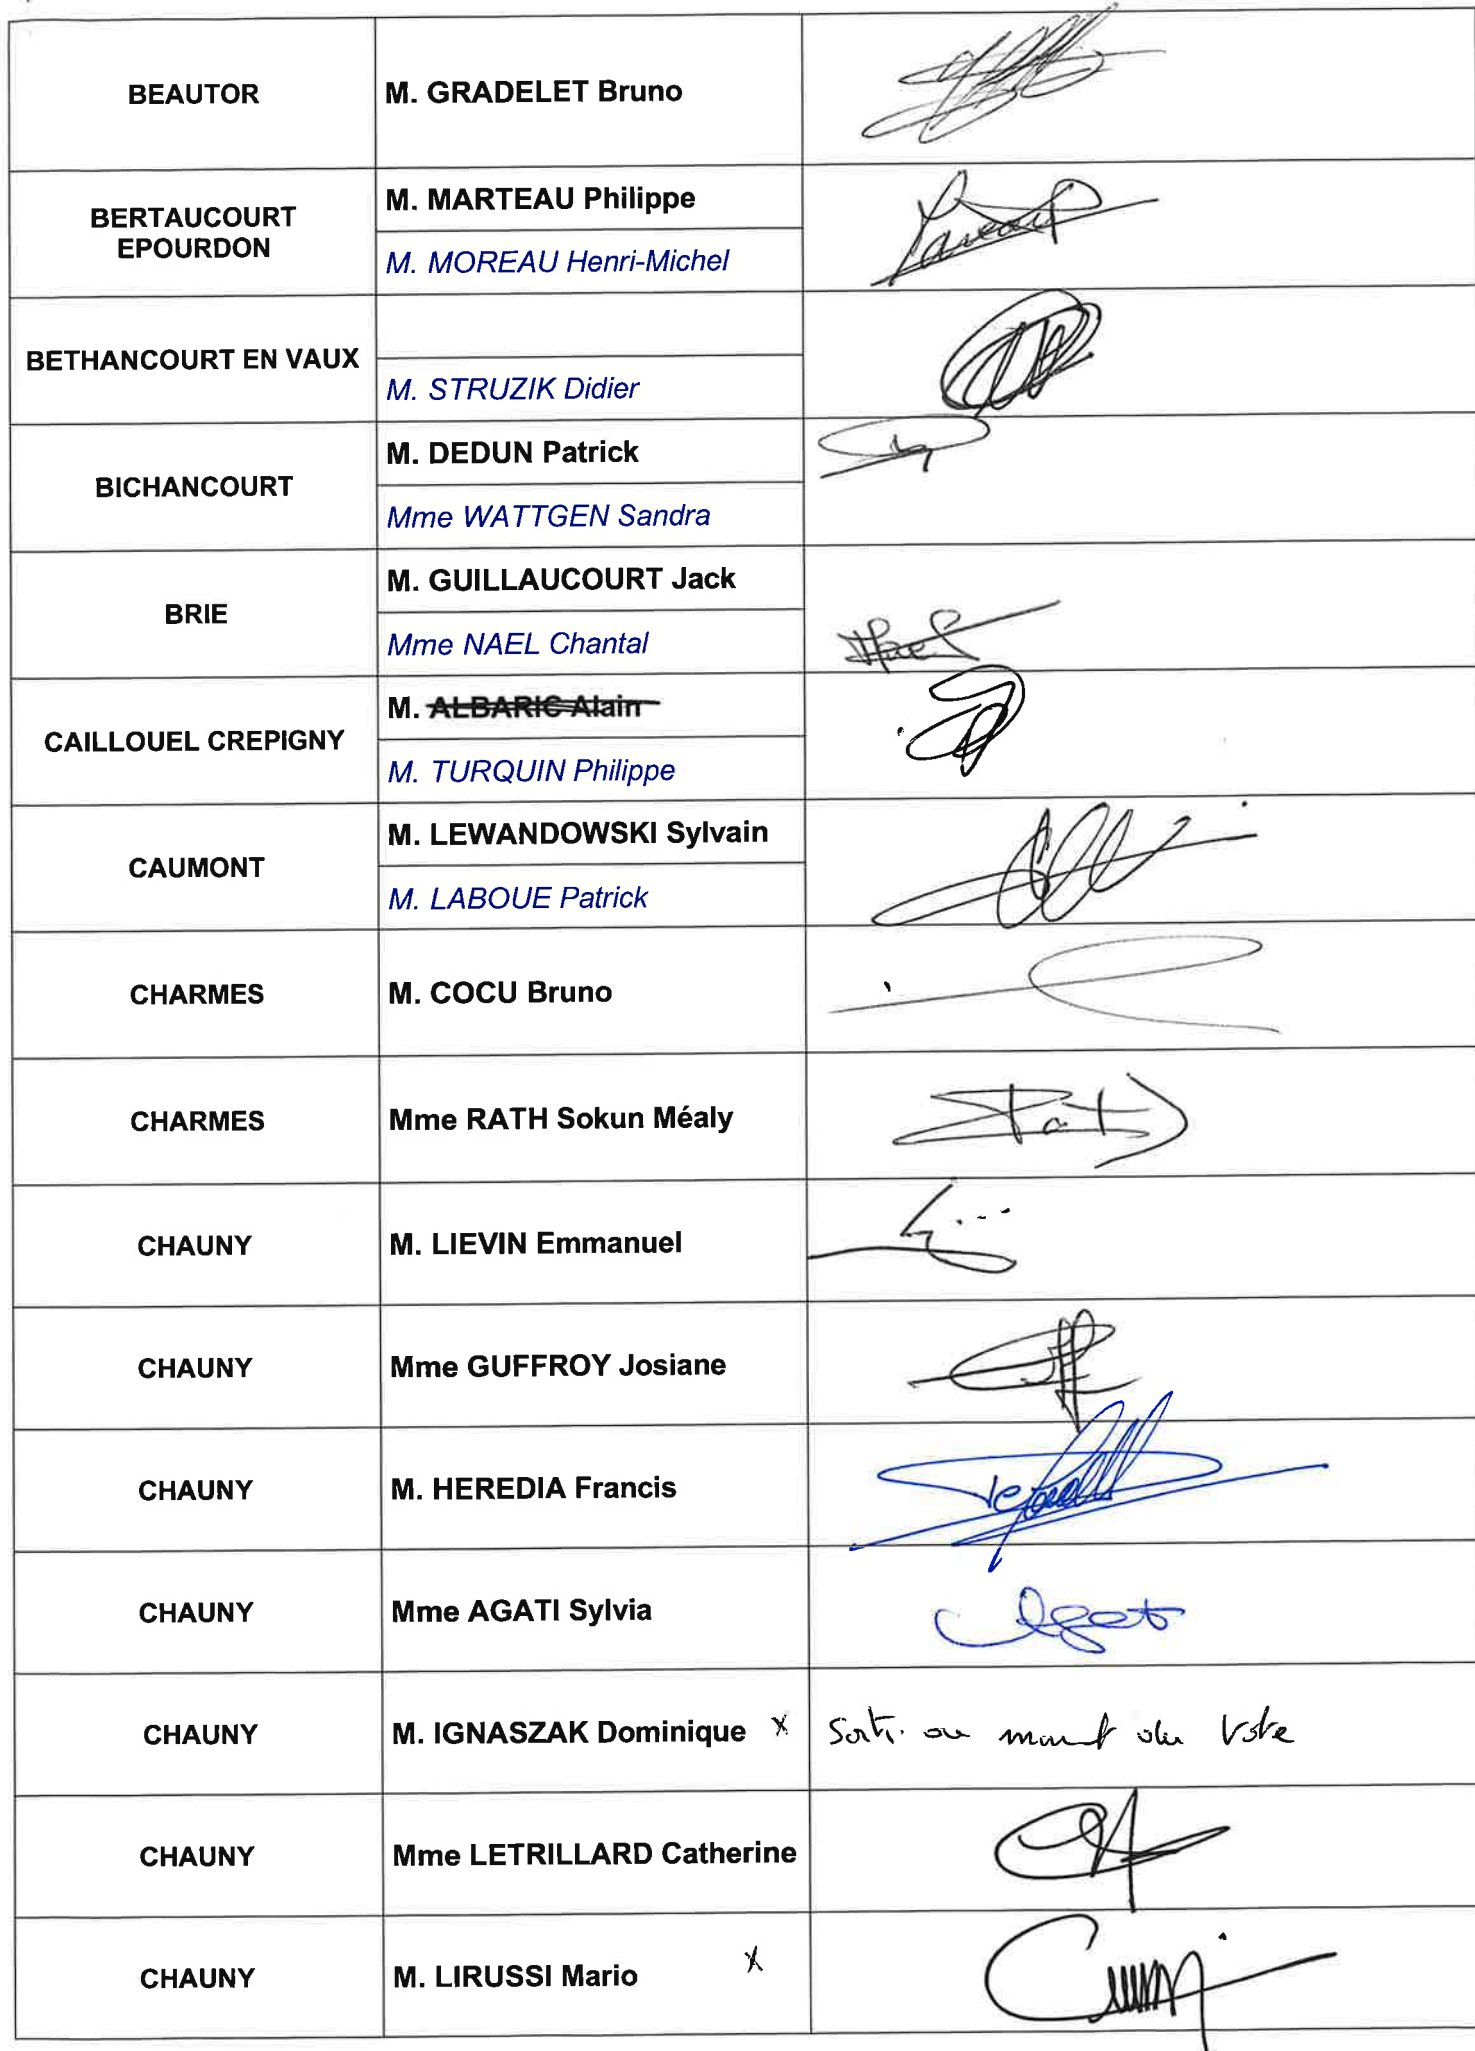 BEAUTOR
M. GRADELET Bruno
BERTAUCOURT
EPOURDON
M. MARTEAU Philippe
M. MOREAU Henri-Michel
BETHANCOURT EN VAUX
M. STRUZIK Didier
BICHANCOURT
M. DEDUN Patrick
Mme WATTGEN Sandra
BRIE
M. GUILLAUCOURT Jack
Mme NAEL Chantal
CAILLOUEL CREPIGNY
M. ALBARIC Alain
M. TURQUIN Philippe
CAUMONT
M. LEWANDOWSKI Sylvain
M. LABOUE Patrick
CHARMES
M. COCU Bruno
CHARMES
Mme RATH Sokun Méaly
CHAUNY
M. LIEVIN Emmanuel
CHAUNY
Mme GUFFROY Josiane
CHAUNY
M. HEREDIA Francis
CHAUNY
Mme AGATI Sylvia
CHAUNY
M. IGNASZAK Dominique x
Sorti au du Vote
CHAUNY
Mme LETRILLARD Catherine
CHAUNY
M. LIRUSSI Mario x